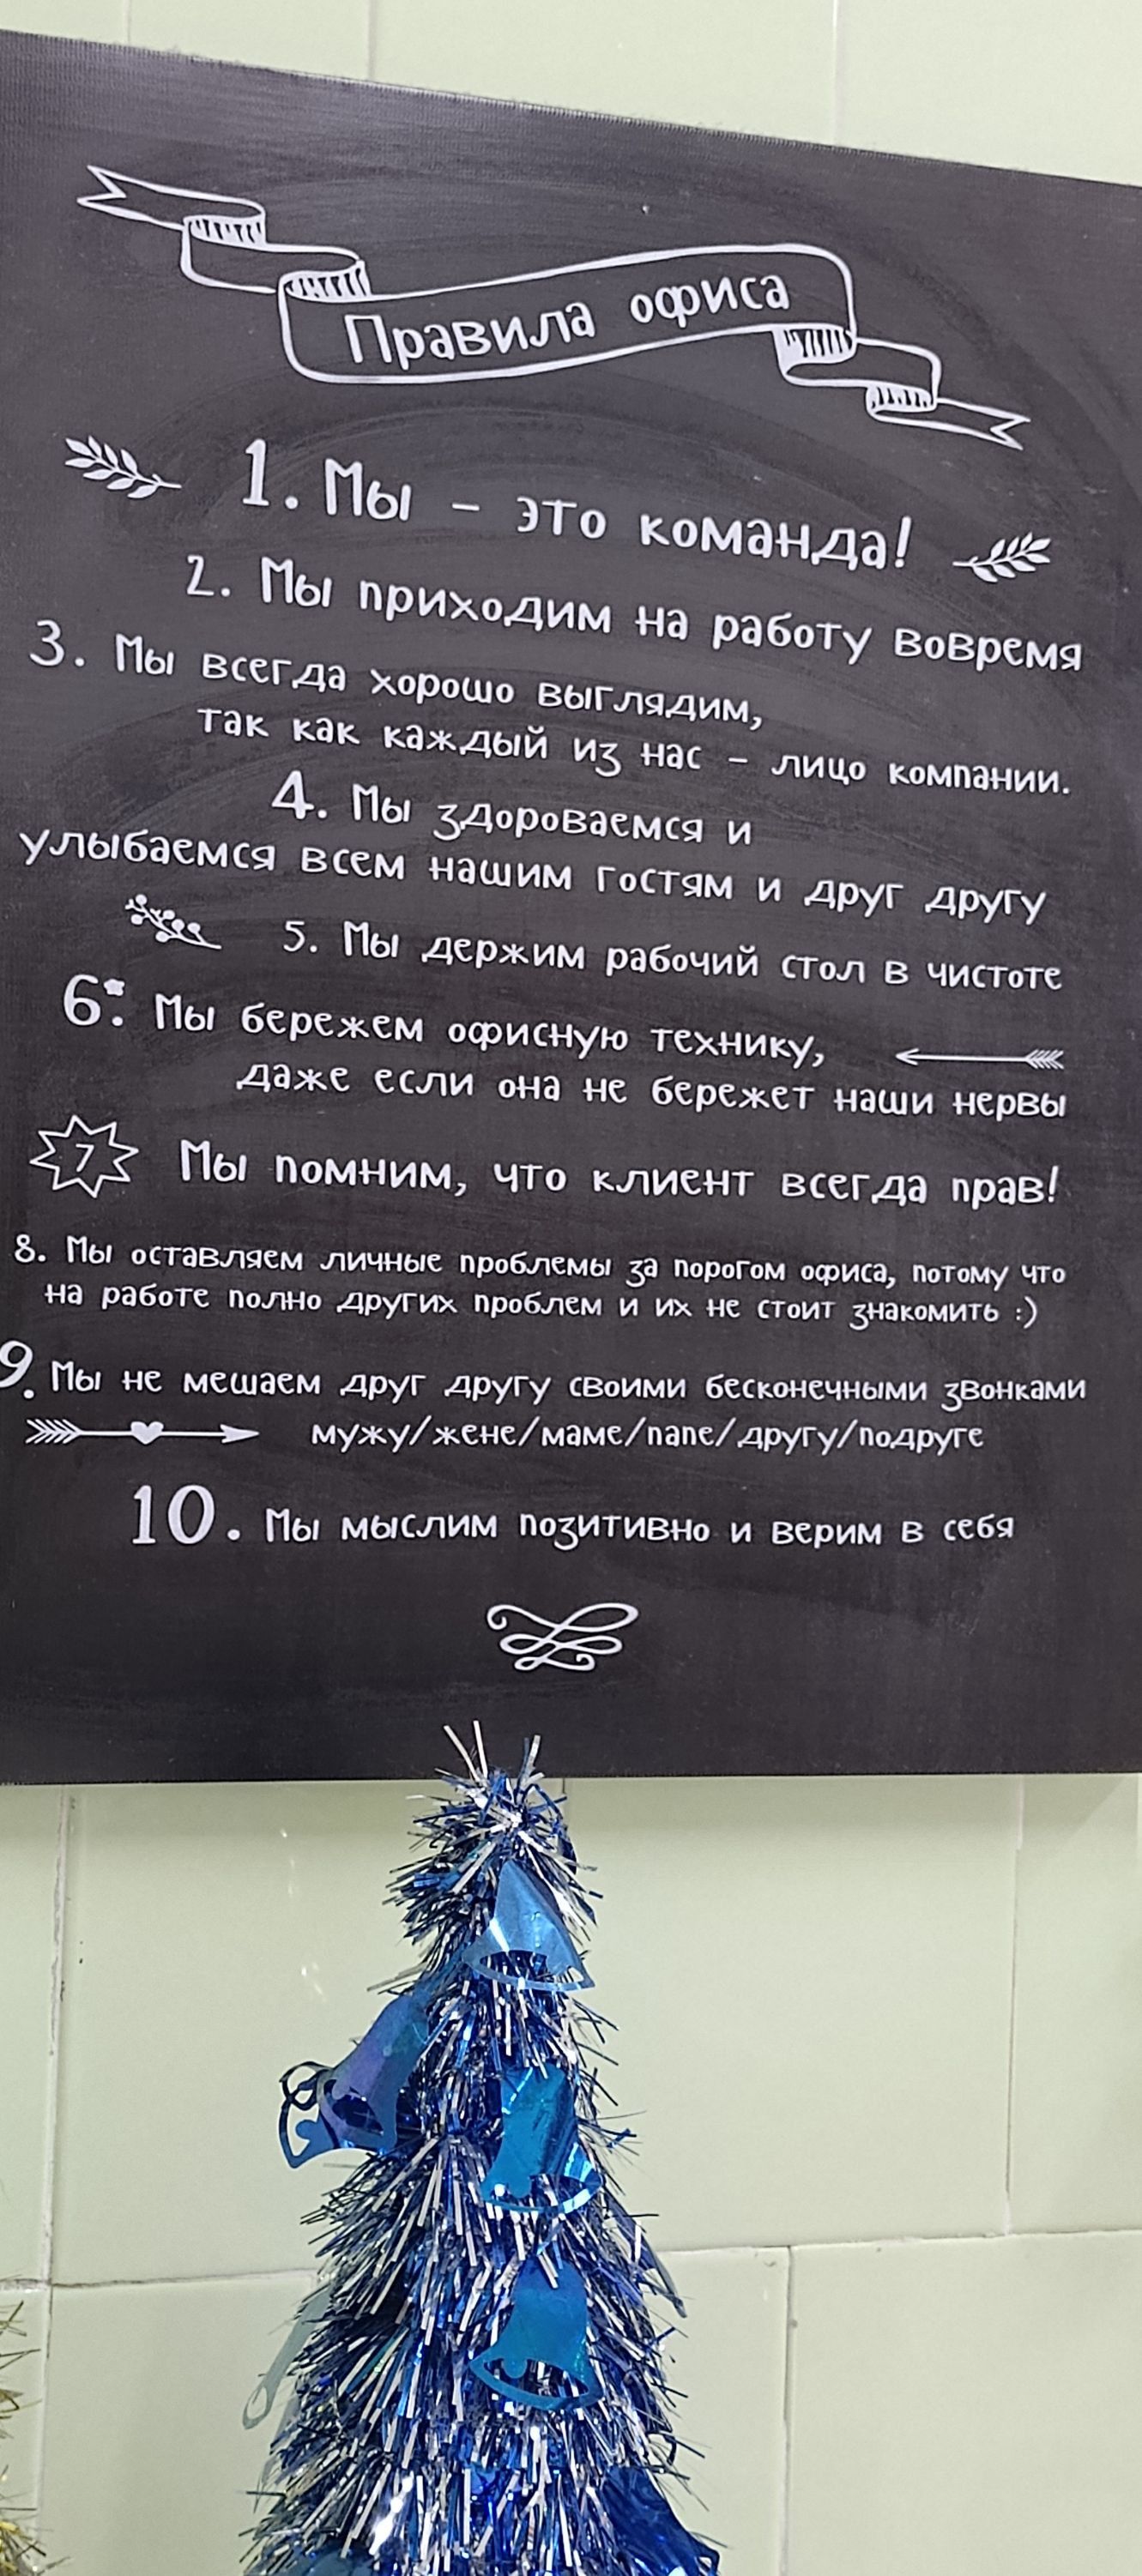 Правила офиса
1. Мы - это команда!
2. Мы приходим на работу вовремя
3. Мы всегда хорошо выглядим,
так как каждый из нас - лицо компании.
4. Мы здороваемся и
улыбаемся всем нашим гостям и друг другу
5. Мы держим рабочий стол в чистоте
6. Мы бережем офисную технику,
даже если она не бережет наши нервы
7 Мы помним, что клиент всегда прав!
8. Мы оставляем личные проблемы за порогом офиса, потому что
на работе полно других проблем и их не стоит знакомить :)
9. Мы не мешаем друг другу своими бесконечными звонками
мужу/жене/маме/папе/другу/подруге
10. Мы мыслим позитивно и верим в себя